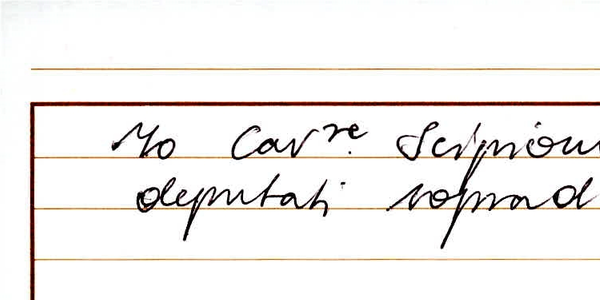 Io Cav.re Scipion
deputati soprad